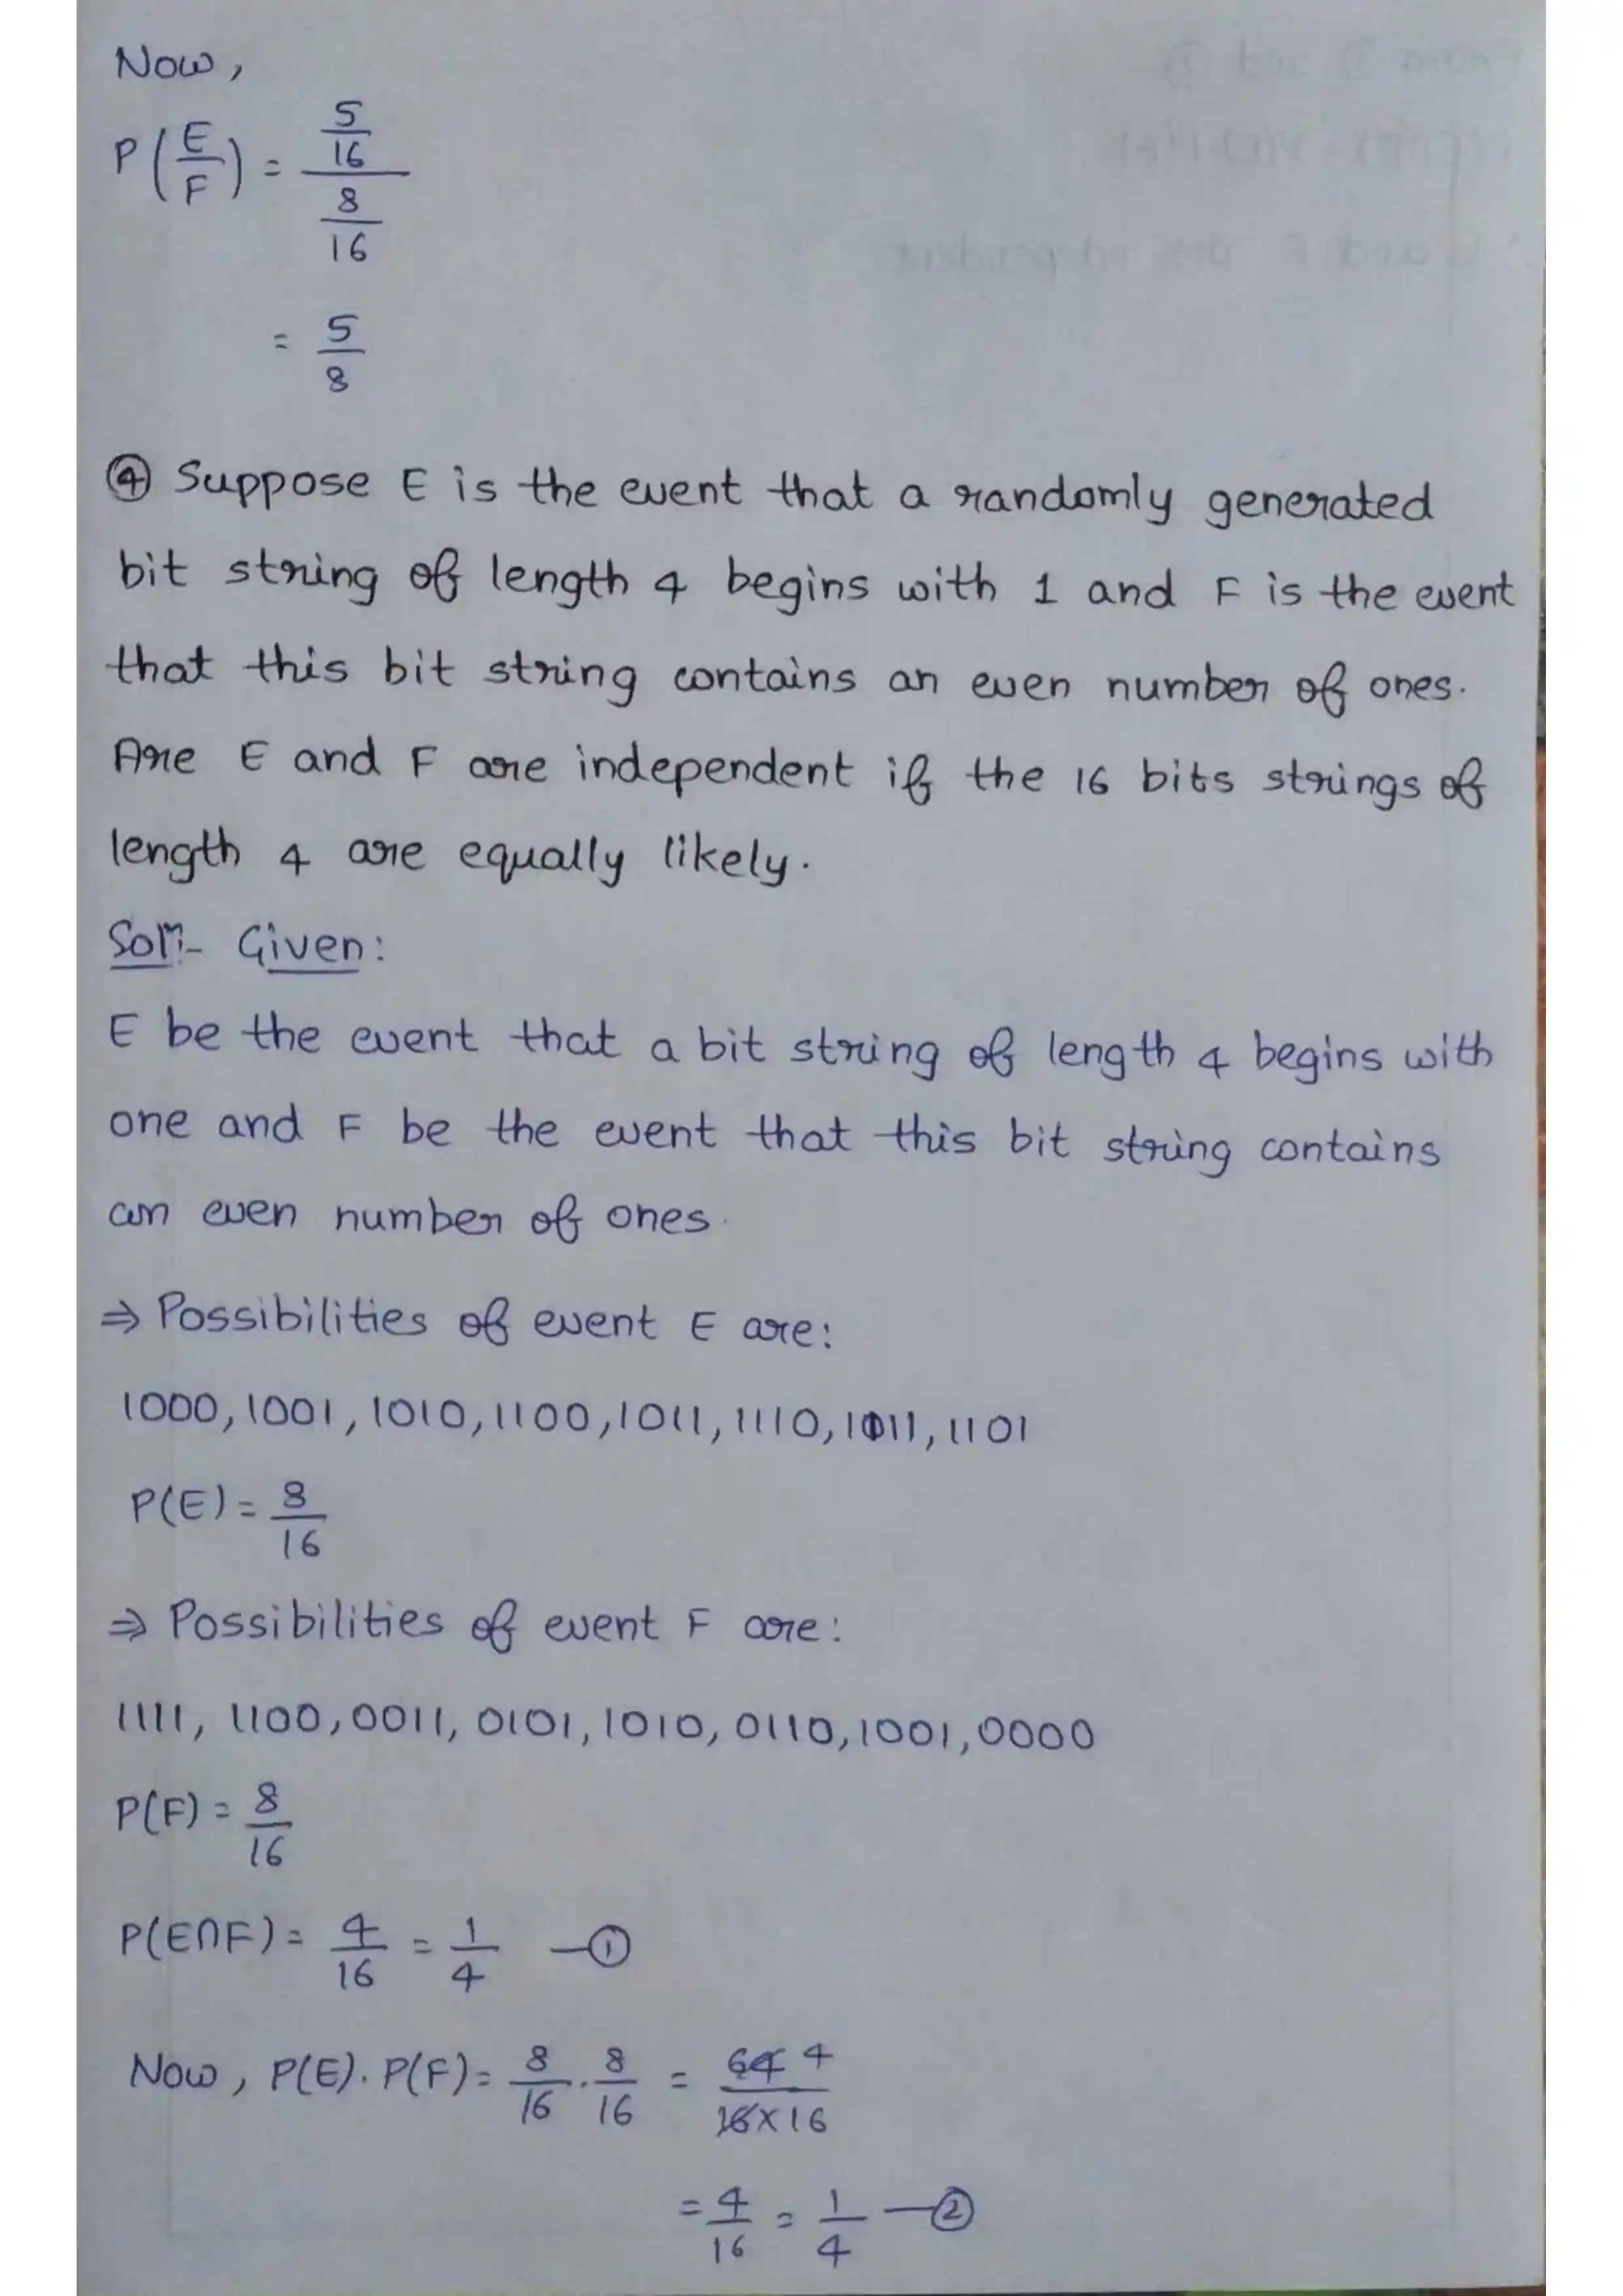 Now,
P(E/F) = (5/16)/(8/16)
= 5/8
④ Suppose E is the event that a randomly generated
bit string of length 4 begins with 1 and F is the event
that this bit string contains an even number of ones.
Are E and F are independent if the 16 bits strings of
length 4 are equally likely.
Soln:- Given:
E be the event that a bit string of length 4 begins with
one and F be the event that this bit string contains
an even number of ones.
⇒ Possibilities of event E are:
1000, 1001, 1010, 1100, 1011, 1110, 1011, 1101
P(E) = 8/16
⇒ Possibilities of event F are:
1111, 1100, 0011, 0101, 1010, 0110, 1001, 0000
P(F) = 8/16
P(E∩F) = 4/16 = 1/4 —①
Now, P(E). P(F) = 8/16 . 8/16 = 64 4/16×16
= 4/16 = 1/4 —②